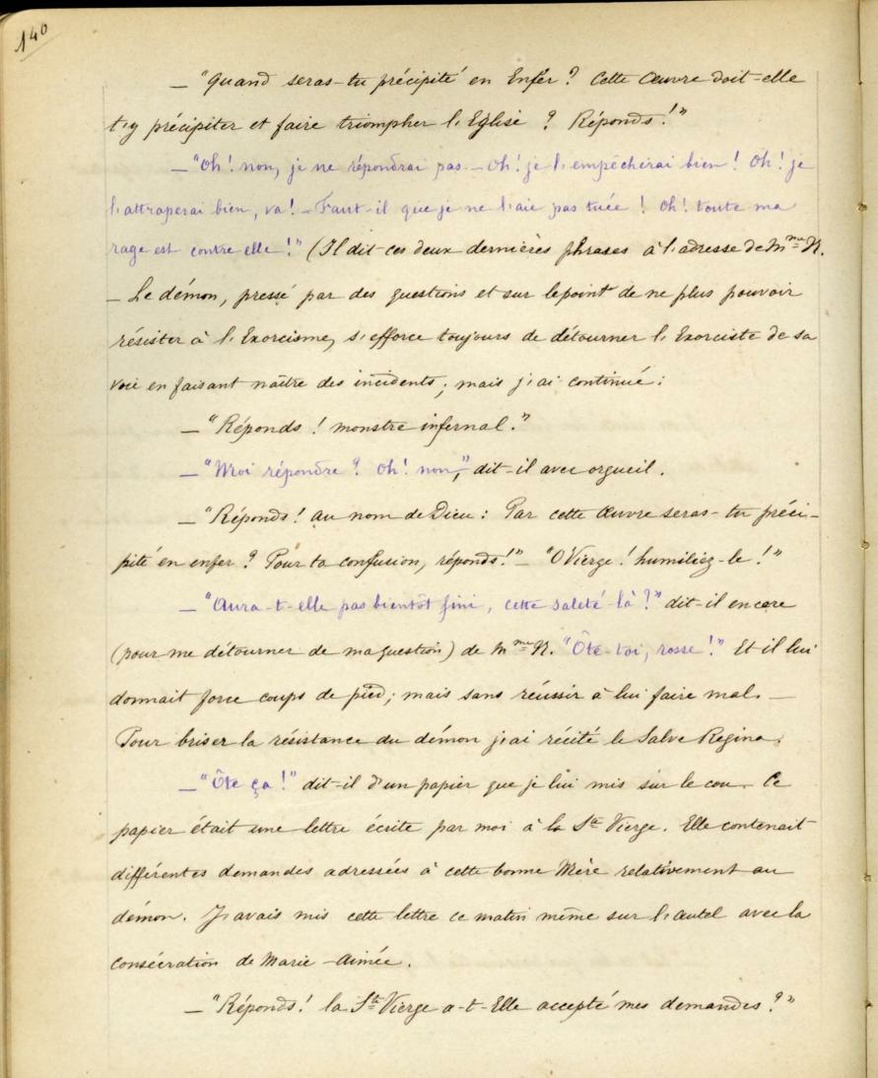 140
— "Quand seras-tu précipité en Enfer ? Cette Œuvre doit-elle
t'y précipiter et faire triompher l'Eglise ? Réponds !"
— "Oh ! non, je ne répondrai pas — Oh ! je l'empêcherai bien ! Oh ! je
l'attraperai bien, va ! — Faut-il que je ne l'aie pas tuée ! Oh ! toute ma
rage est contre elle !" (Il dit ces deux dernières phrases à l'adresse de Mme N.
— Le démon, pressé par des questions et sur le point de ne plus pouvoir
résister à l'Exorcisme, s'efforce toujours de détourner l'Exorciste de sa
voie en faisant naître des incidents ; mais j'ai continué :
— "Réponds ! monstre infernal."
— "Moi répondre ? Oh ! non," dit-il avec orgueil.
— "Réponds ! au nom de Dieu : Par cette Œuvre seras-tu préci-
pité en enfer ? Pour ta confusion, réponds !" — "O Vierge ! humiliez-le !"
— "Aura-t-elle pas bientôt fini, cette saleté-là ?" dit-il encore
(pour me détourner de ma question) de Mme N. "Ôte-toi, rosse !" Et il lui
donnait force coups de pied ; mais sans réussir à lui faire mal. —
Pour briser la résistance du démon j'ai récité le Salve Regina.
— "Ôte ça !" dit-il d'un papier que je lui mis sur le cou. Ce
papier était une lettre écrite par moi à la Ste Vierge. Elle contenait
différentes demandes adressées à cette bonne Mère relativement au
démon. J'avais mis cette lettre ce matin même sur l'autel avec la
consécration de Marie-Aimée.
— "Réponds ! la Ste Vierge a-t-Elle accepté mes demandes ?"